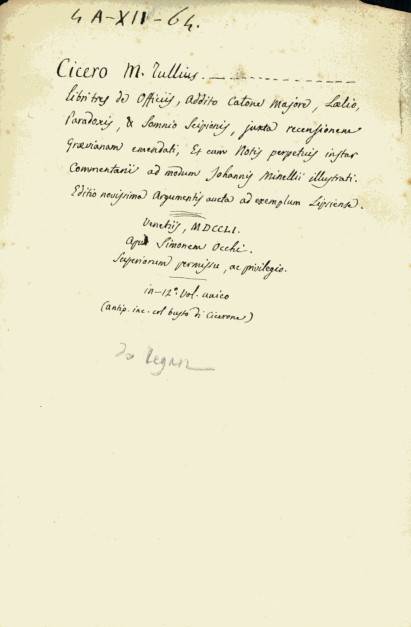 4 A-XII-64.
Cicero M. Tullius.
libri tres de Officiis, Addito Catone Majore, Lælio,
Paradoxis, & Somnio Scipionis, juxta recensionem
Grævianam emendati, Et cum Notis perpetuis instar
Commentarii ad modum Johannis Minellii illustrati.
Editio novissima Argumentis aucta ad exemplum Lipsiense.
Venetiis, MDCCLI.
Apud Simonem Occhi.
Superiorum permissu, ac privilegio.
in-12º. Vol. unico
(antip. inc. col busto di Cicerone)